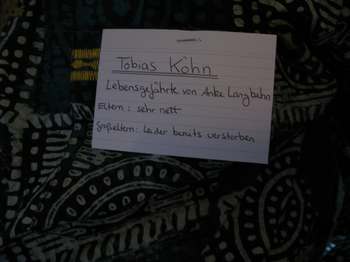 Tobias Köhn
Lebensgefährte von Anke Lanzbahn
Eltern: sehr nett
Großeltern: Leider bereits verstorben